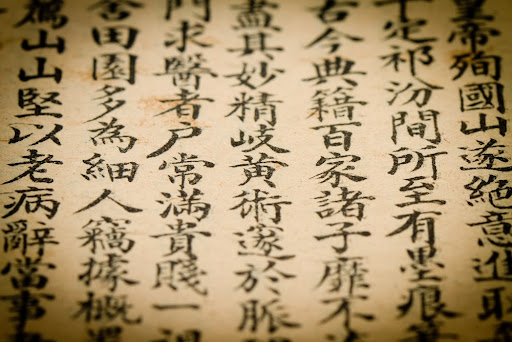 皇帝殉國山遂絕意進取
定祁汾間所至有墨痕
古今典籍百家諸子靡不
盡其妙精岐黃術邃於脈
門求醫者戶常滿貴賤一
舍田園多為細人竊據概
薦山山堅以老病辭當事